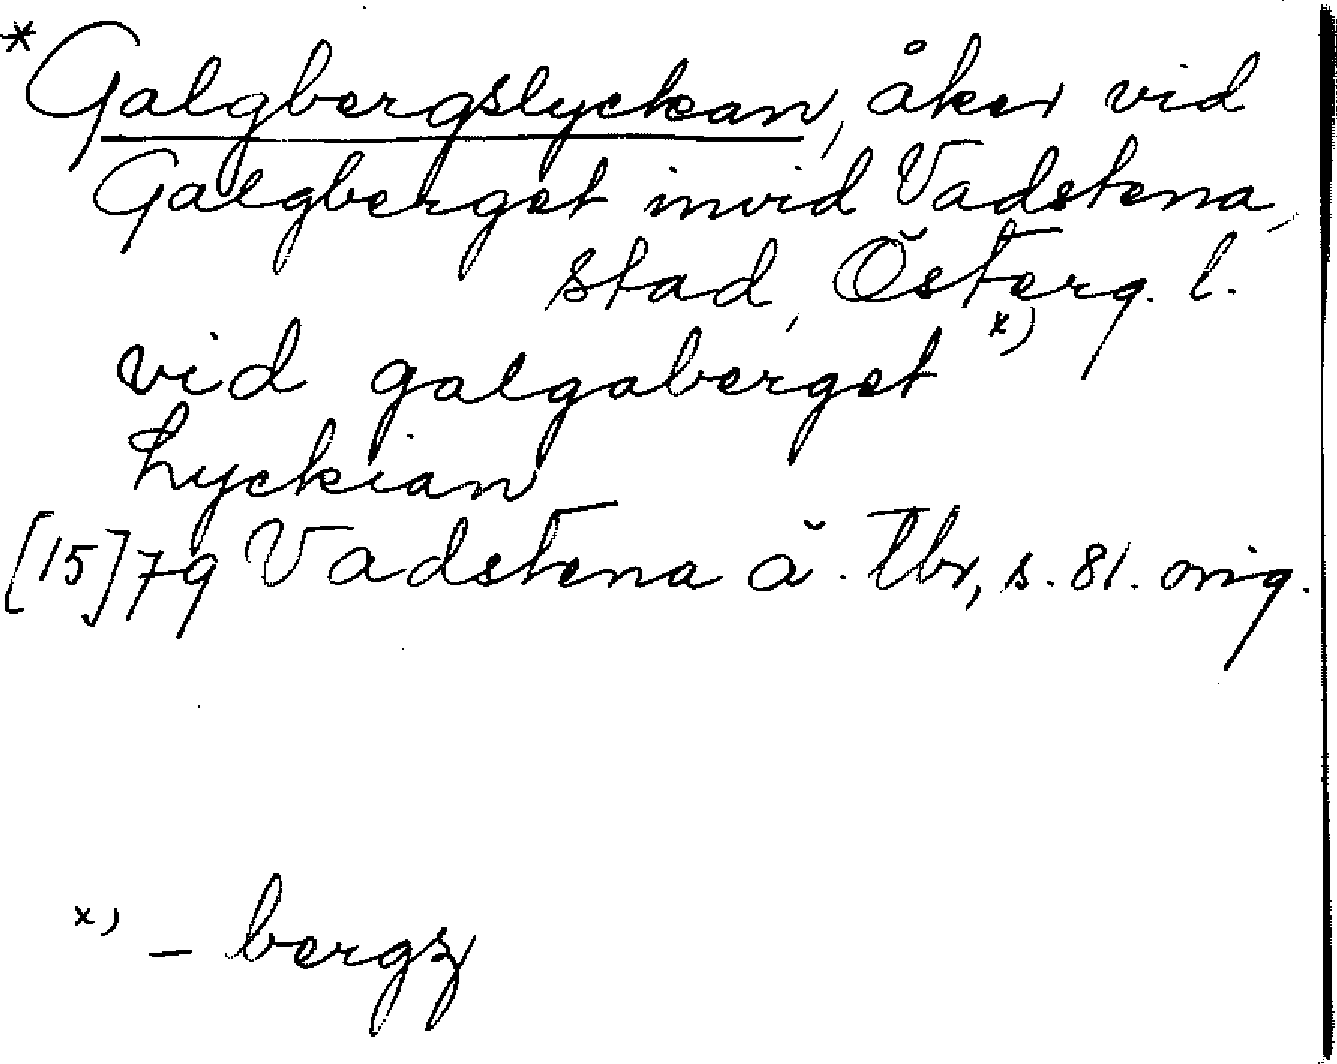 *Galgbergslyckan, åker vid
Galgberget invid Vadstena,
stad, Österg. l.
vid galgaberget x)
Lyckian
[15]79 Vadstena ä. Tbr, s. 81. orig.
x) – bergz